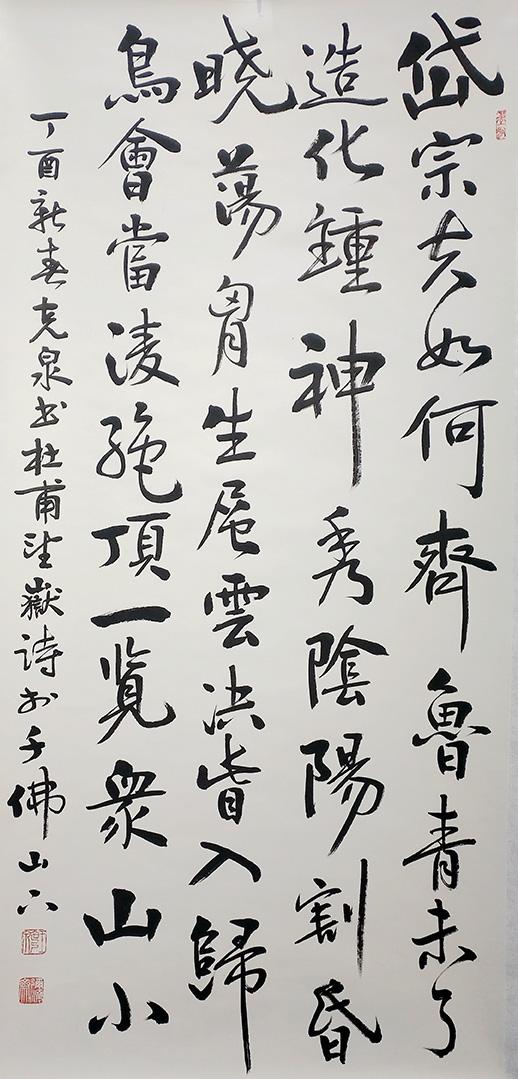 岱宗夫如何齊魯青未了
造化鍾神秀陰陽割昏
曉蕩胷生層雲決眥入歸
鳥會當凌絶頂一覧衆山小
丁酉新春克泉书杜甫望嶽诗於千佛山下